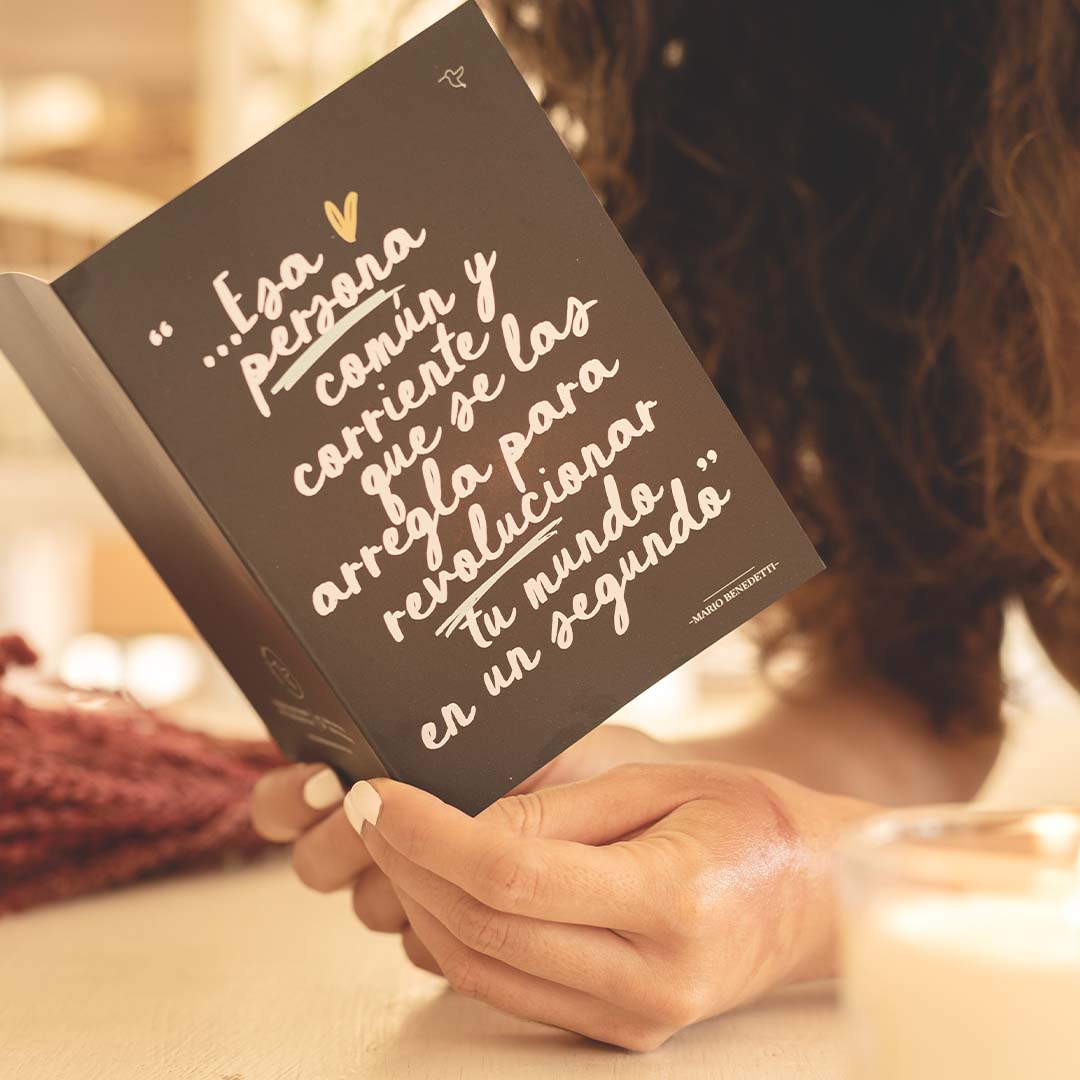 “...Esa
persona
común y
corriente
que se las
arregla para
revolucionar
tu mundo
en un segundo”
-MARIO BENEDETTI-